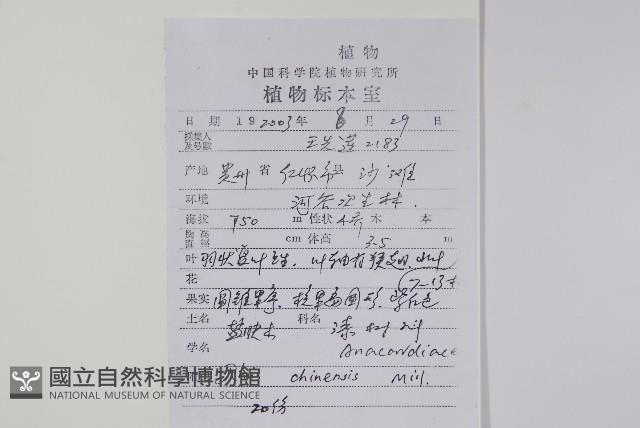 植物
中国科学院植物研究所
植物标本室
日 期 19 2003 年 8 月 29 日
采集人及号数 2183
产地 贵州 省 市县 沙滩
环境 河谷次生林.
海拔 750 m 性状 小乔木 本
胸高直径 cm 体高 3-5 m
叶 羽状复叶互生, 叶轴有狭翅, 小叶
花 7-13
果实 圆锥果序, 核果扁圆形, 紫红色
土名 盐肤木 科名 漆树科
学名 Anacardiace
chinensis Mill.
20份
國立自然科學博物館
NATIONAL MUSEUM OF NATURAL SCIENCE